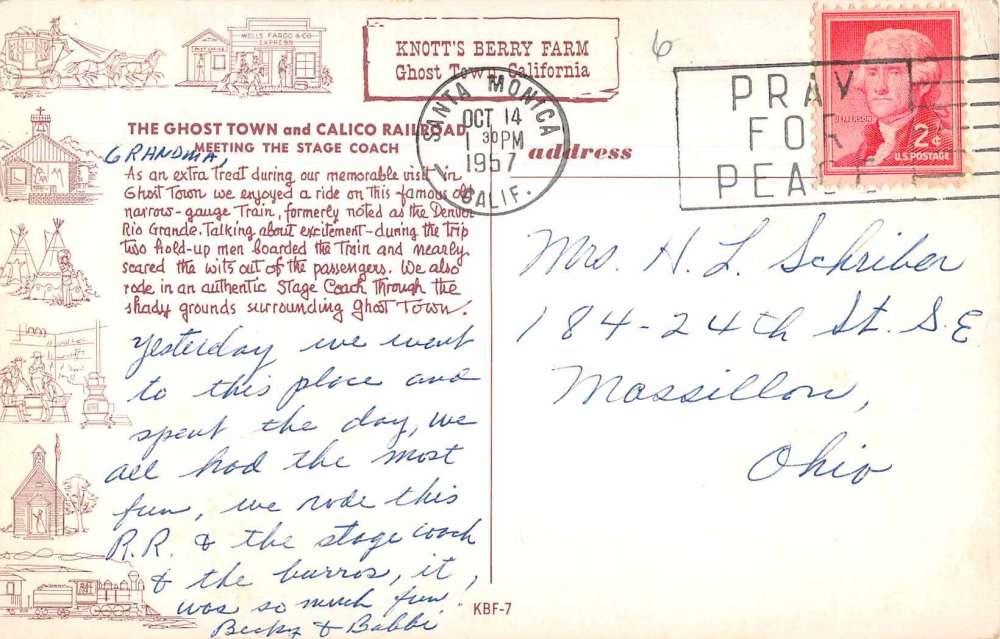 POST OFFICE
WELLS FARGO & CO
EXPRESS
KNOTT'S BERRY FARM
Ghost Town, California
6
SANTA MONICA
OCT 14
1 30 PM
1957
CALIF.
PRAY
FOR
PEACE
JEFFERSON
2¢
U.S. POSTAGE
THE GHOST TOWN and CALICO RAILROAD
MEETING THE STAGE COACH
GRANDMA,
As an extra treat during our memorable visit in
Ghost Town we enjoyed a ride on this famous old
narrow-gauge Train, formerly noted as the Denver
Rio Grande. Talking about excitement-during the trip
two hold-up men boarded the Train and nearly
scared the wits out of the passengers. We also
rode in an authentic Stage Coach through the
shady grounds surrounding Ghost Town.
Yesterday we went
to this place and
spent the day, we
all had the most
fun, we rode this
R.R. & the stage coach
& the burros, it,
was so much fun
Becky & Babbi
KBF-7
address
Mrs. H. L. Schriber
184-24th St. S.E
Massillon,
Ohio